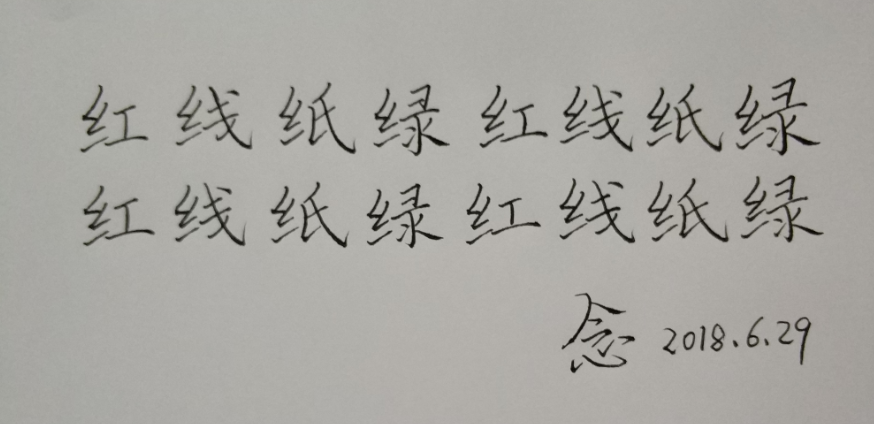 红线纸绿红线纸绿
红线纸绿红线纸绿
念 2018.6.29